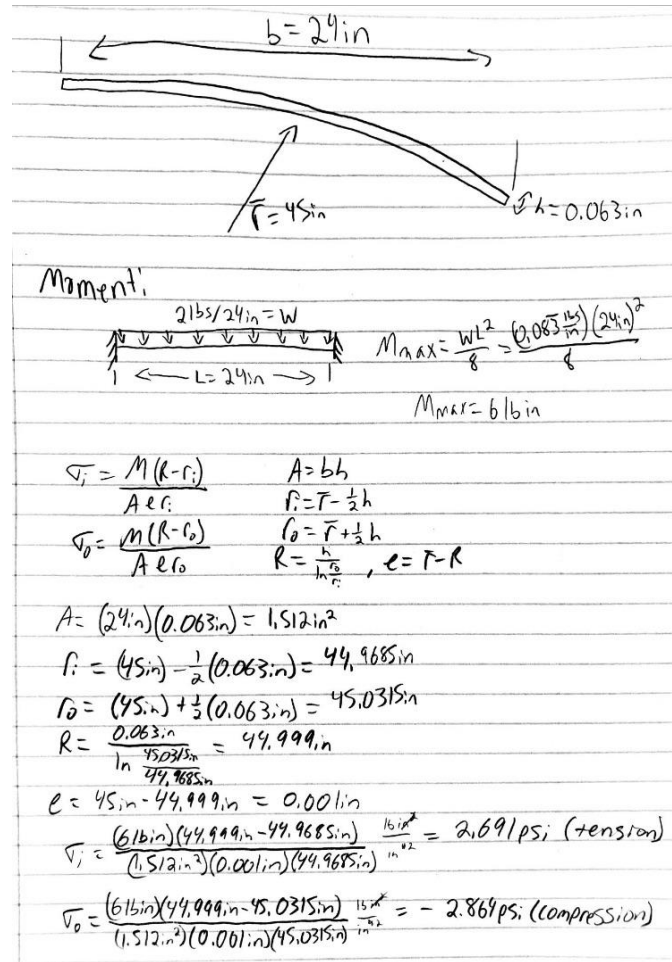 b=24in
r̄=45in
h=0.063in
Moment:
2lbs/24in=W
L=24in
Mmax=WL²/8=(0.083 lbs/in)(24in)²/8
Mmax=6lbin
σi=M(R-ri)/Aeri A=bh
ri=r̄-½h
σo=M(R-ro)/Aero ro=r̄+½h
R=h/ln ro/ri, e=r̄-R
A=(24in)(0.063in)=1.512in²
ri=(45in)-½(0.063in)=44.9685in
ro=(45in)+½(0.063in)=45.0315in
R=0.063in/ln 45.0315in/44.9685in=44.999in
e=45in-44.999in=0.001in
σi=(6lbin)(44.999in-44.9685in)/(1.512in²)(0.001in)(44.9685in) lbin²/in⁴²=2.691psi (tension)
σo=(6lbin)(44.999in-45.0315in)/(1.512in²)(0.001in)(45.0315in) lbin²/in⁴²=-2.864psi (compression)